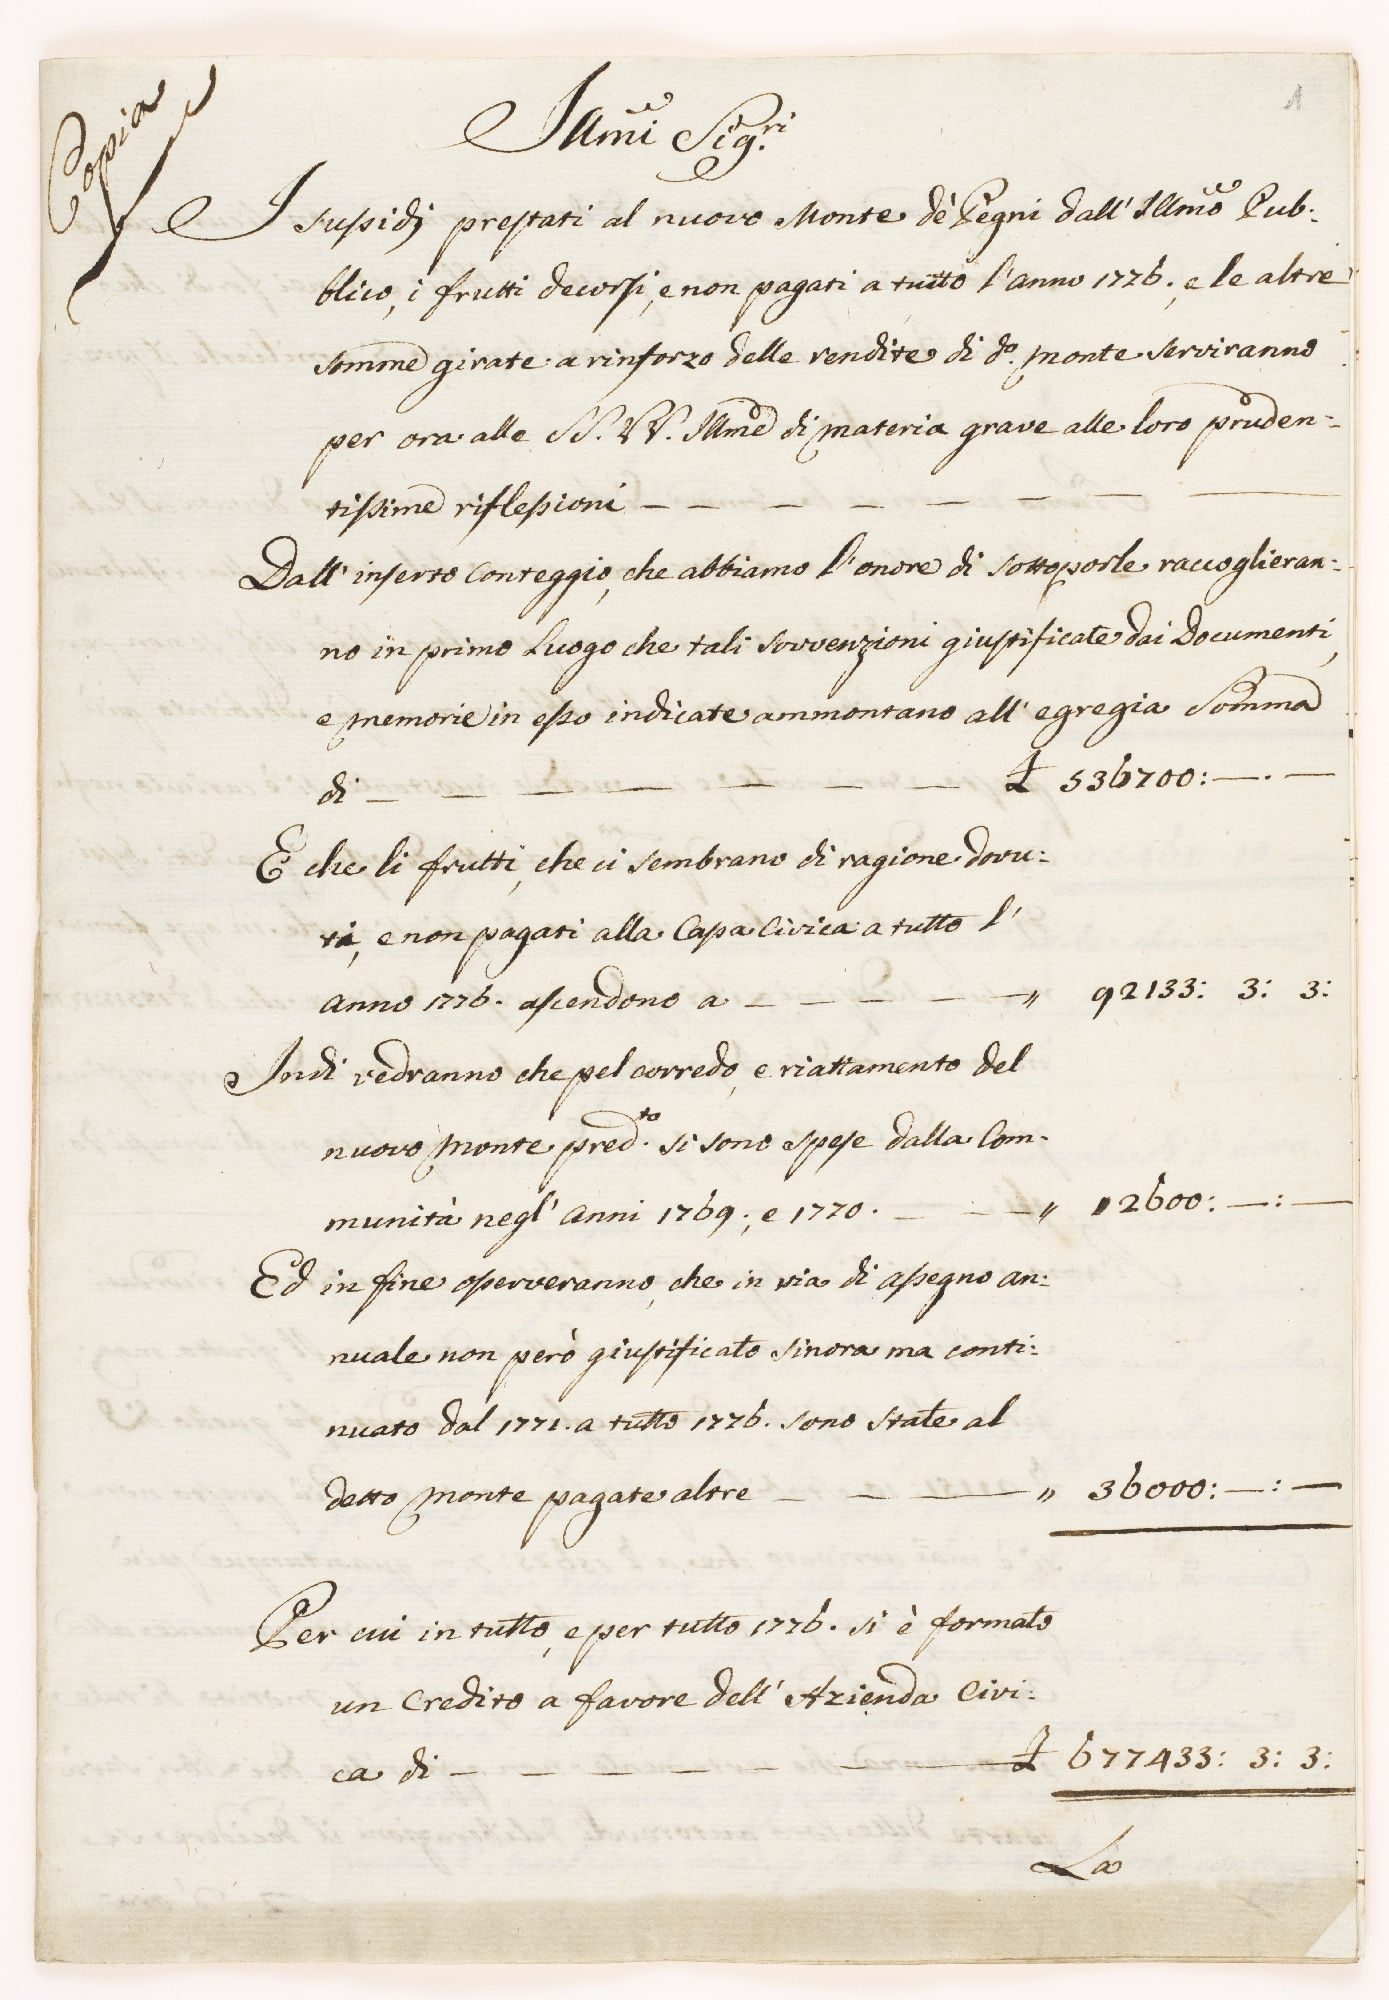 Copia
1
Illmi Sig.ri
I sussidj prestati al nuovo Monte de' Pegni dall' Illmo Pub-
blico, i frutti decorsi, e non pagati a tutto l'anno 1776., e le altre
somme girate a rinforzo delle rendite di do. Monte serviranno
per ora alle SS. VV. Illme di materia grave alle loro pruden-
tissime riflessioni — — — — — — — —
Dall' inserto Conteggio, che abbiamo l'onore di sottoporle raccoglieran-
no in primo Luogo che tali sovvenzioni giustificate dai Documenti,
e memorie in esso indicate ammontano all' egregia Somma
di — — — — — — — — £ 536700: — . —
E che li frutti, che ci sembrano di ragione dovu-
ti, e non pagati alla Cassa Civica a tutto l'
anno 1776. ascendono a — — — — — " 92133: 3: 3:
Indi vedranno che pel corredo, e riattamento del
nuovo Monte pred.to si sono spese dalla Com-
munità negl' Anni 1769., e 1770. — — — " 12600: — : —
Ed in fine osserveranno, che in via di assegno an-
nuale non però giustificato sinora ma conti-
nuato dal 1771. a tutto 1776. sono state al
detto Monte pagate altre — — — " 36000: — : —
Per cui in tutto, e per tutto 1776. si è formato
un Credito a favore dell' Azienda Civi-
ca di — — — — — — — £ 677433: 3: 3:
La